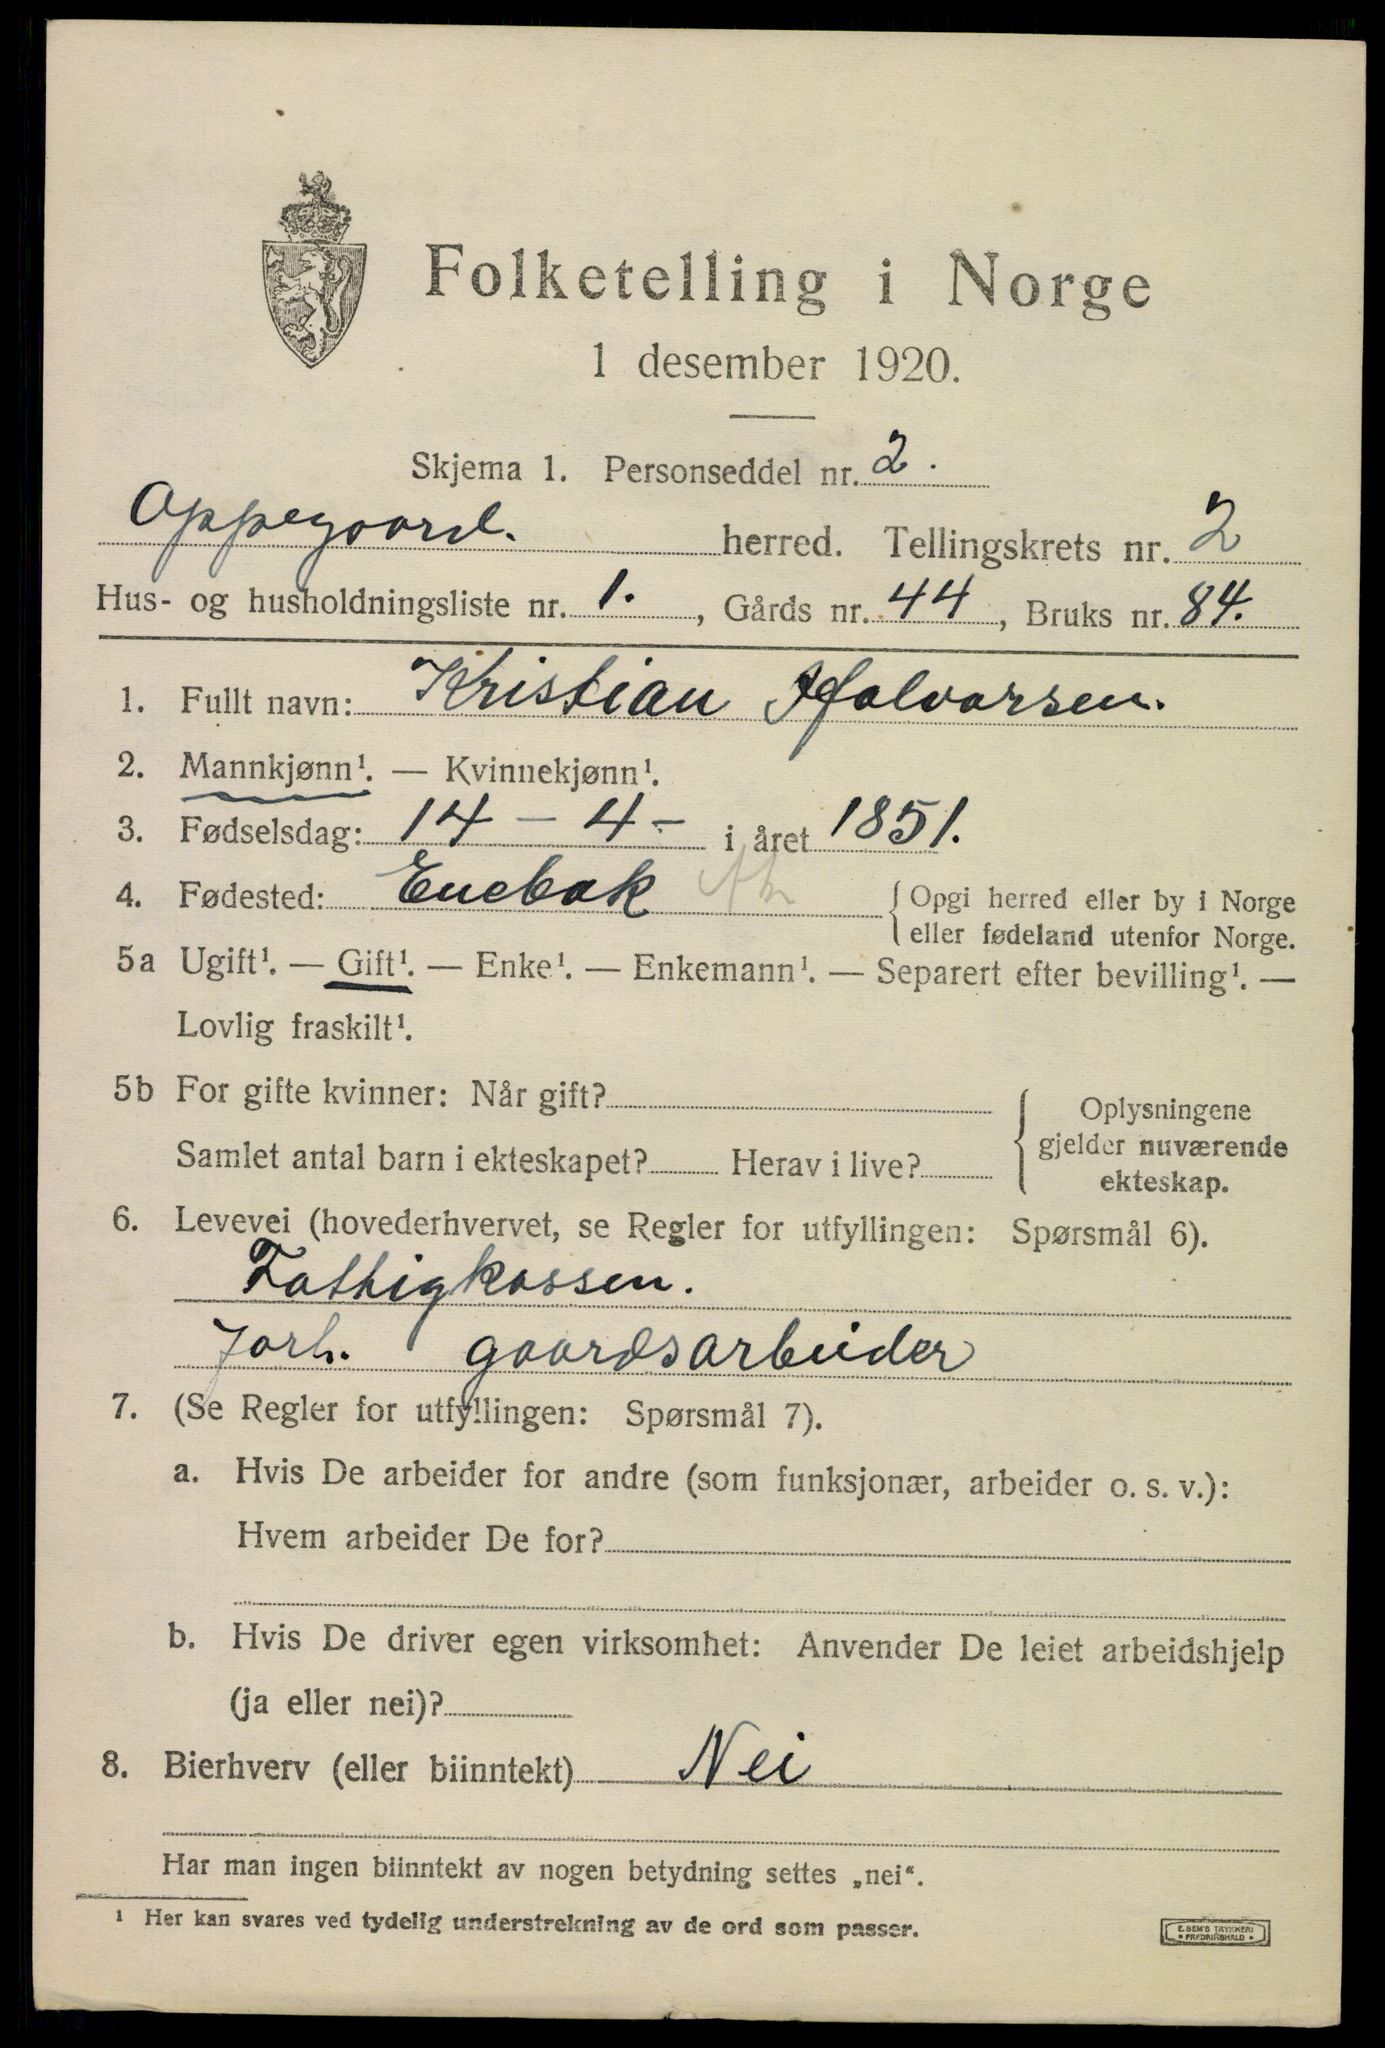 Folketelling i Norge
1 desember 1920.
Skjema 1. Personseddel nr. 2.
Oppegaard. herred. Tellingskrets nr. 2
Hus- og husholdningsliste nr. 1., Gårds nr. 44, Bruks nr. 84.
1. Fullt navn: Kristian Halvorsen.
2. Mannkjønn¹. — Kvinnekjønn¹.
3. Fødselsdag: 14 - 4 - i året 1851.
4. Fødested: Enebak
Opgi herred eller by i Norge
eller fødeland utenfor Norge.
5a Ugift¹. — Gift¹. — Enke¹. — Enkemann¹. — Separert efter bevilling¹. —
Lovlig fraskilt¹.
5b For gifte kvinner: Når gift?
Samlet antal barn i ekteskapet? Herav i live?
Oplysningene
gjelder nuværende
ekteskap.
6. Levevei (hovederhvervet, se Regler for utfyllingen: Spørsmål 6).
Fattigkassen.
forh. gaardsarbeider
7. (Se Regler for utfyllingen: Spørsmål 7).
a. Hvis De arbeider for andre (som funksjonær, arbeider o. s. v.):
Hvem arbeider De for?
b. Hvis De driver egen virksomhet: Anvender De leiet arbeidshjelp
(ja eller nei)?
8. Bierhverv (eller biinntekt) Nei
Har man ingen biinntekt av nogen betydning settes „nei“.
¹ Her kan svares ved tydelig understrekning av de ord som passer.
E. SEM'S TRYKKERI
• FREDRIKSHALD •